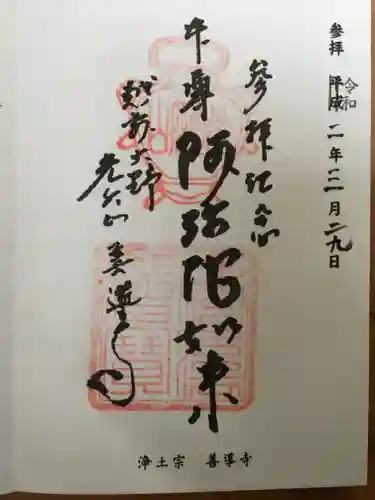 参拝 平成 令和 二年三月二九日
参拝記念
本尊 阿弥陀如来
越前大野
光谷山 善導寺
浄土宗 善導寺